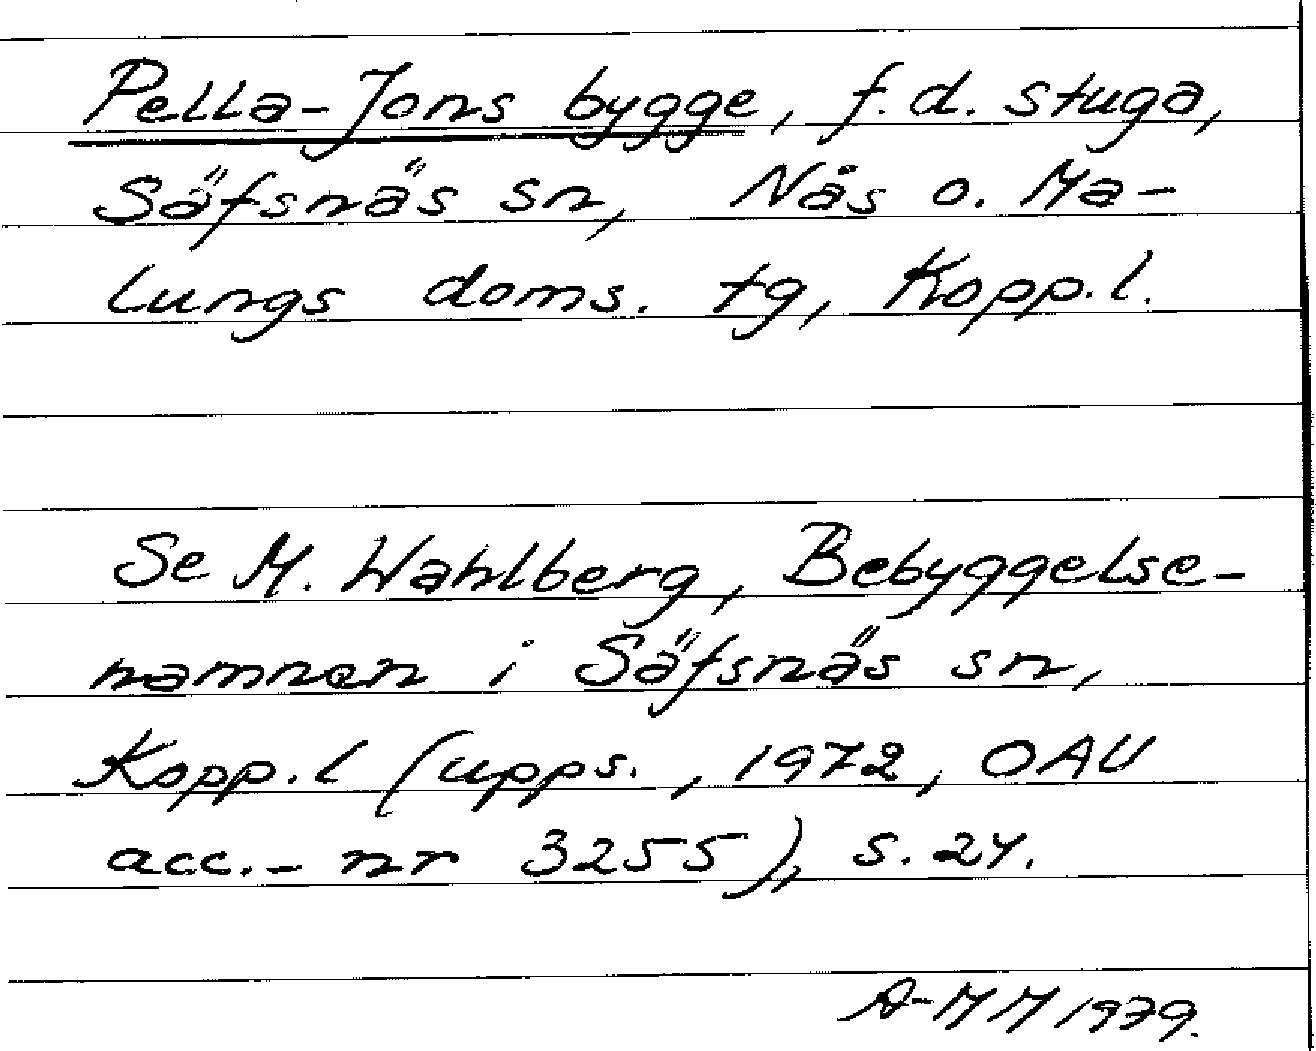 Pella-Jons bygge, f.d. stuga,
Säfsnäs sn, Nås o. Ma-
lungs doms. tg, Kopp.l.
Se M. Wahlberg, Bebyggelse-
namnen i Säfsnäs sn,
Kopp.l (upps., 1972, OAU
acc.-nr 3255), s. 24.
A-MM 1979.